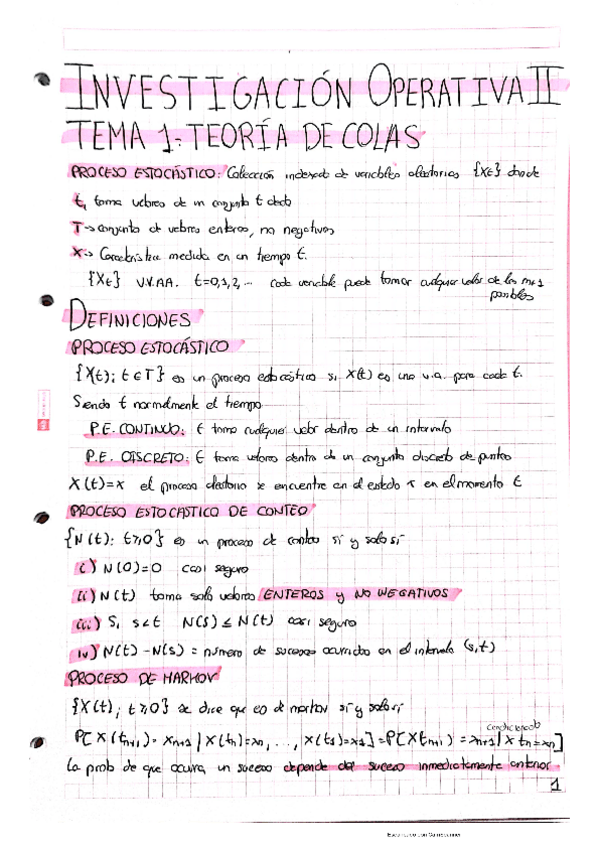 INVESTIGACIÓN OPERATIVA II
TEMA 1: TEORÍA DE COLAS
PROCESO ESTOCÁSTICO: Colección indexada de variables aleatorias {Xt} donde
t, toma valores de un conjunto t dado
T → conjunto de valores enteros, no negativos
X → Característica medida en un tiempo t.
{Xt} VV.AA. t=0,1,2,... cada variable puede tomar cualquier valor de los m+1
posibles
DEFINICIONES
PROCESO ESTOCÁSTICO
{X(t); t ∈ T} es un proceso estocástico si X(t) es una v.a. para cada t.
Siendo t normalmente el tiempo
P.E. CONTINUO: t toma cualquier valor dentro de un intervalo
P.E. DISCRETO: t toma valores dentro de un conjunto discreto de puntos
X(t)=x el proceso aleatorio se encuentra en el estado x en el momento t
PROCESO ESTOCASTICO DE CONTEO
{N(t): t≥0} es un proceso de conteo si y solo si
i) N(0)=0 casi seguro
ii) N(t) toma solo valores ENTEROS y NO NEGATIVOS
iii) Si s<t N(s) ≤ N(t) casi seguro
iv) N(t)-N(s) = número de sucesos ocurridos en el intervalo (s,t)
PROCESO DE MARKOV
{X(t); t≥0} se dice que es de markov si y solo si
condicionado
P[X(tn+1)=xn+1 | X(tn)=xn, ..., X(t1)=x1] = P[Xtn+1) = xn+1 | Xtn=xn]
La prob de que ocurra un suceso depende del suceso inmediatamente anterior
1
Escaneado con CamScanner